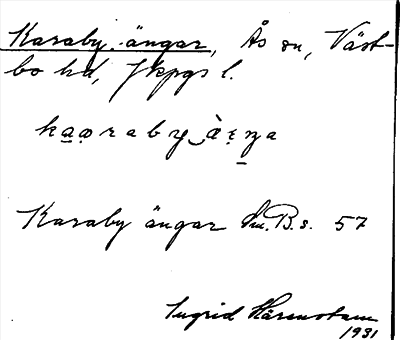 Karaby ängar, Ås sn, Väst-
bo hd, Jkpgs l.
Karaby ängar Sm. B. s. 57
Ingrid Härenstam
1931